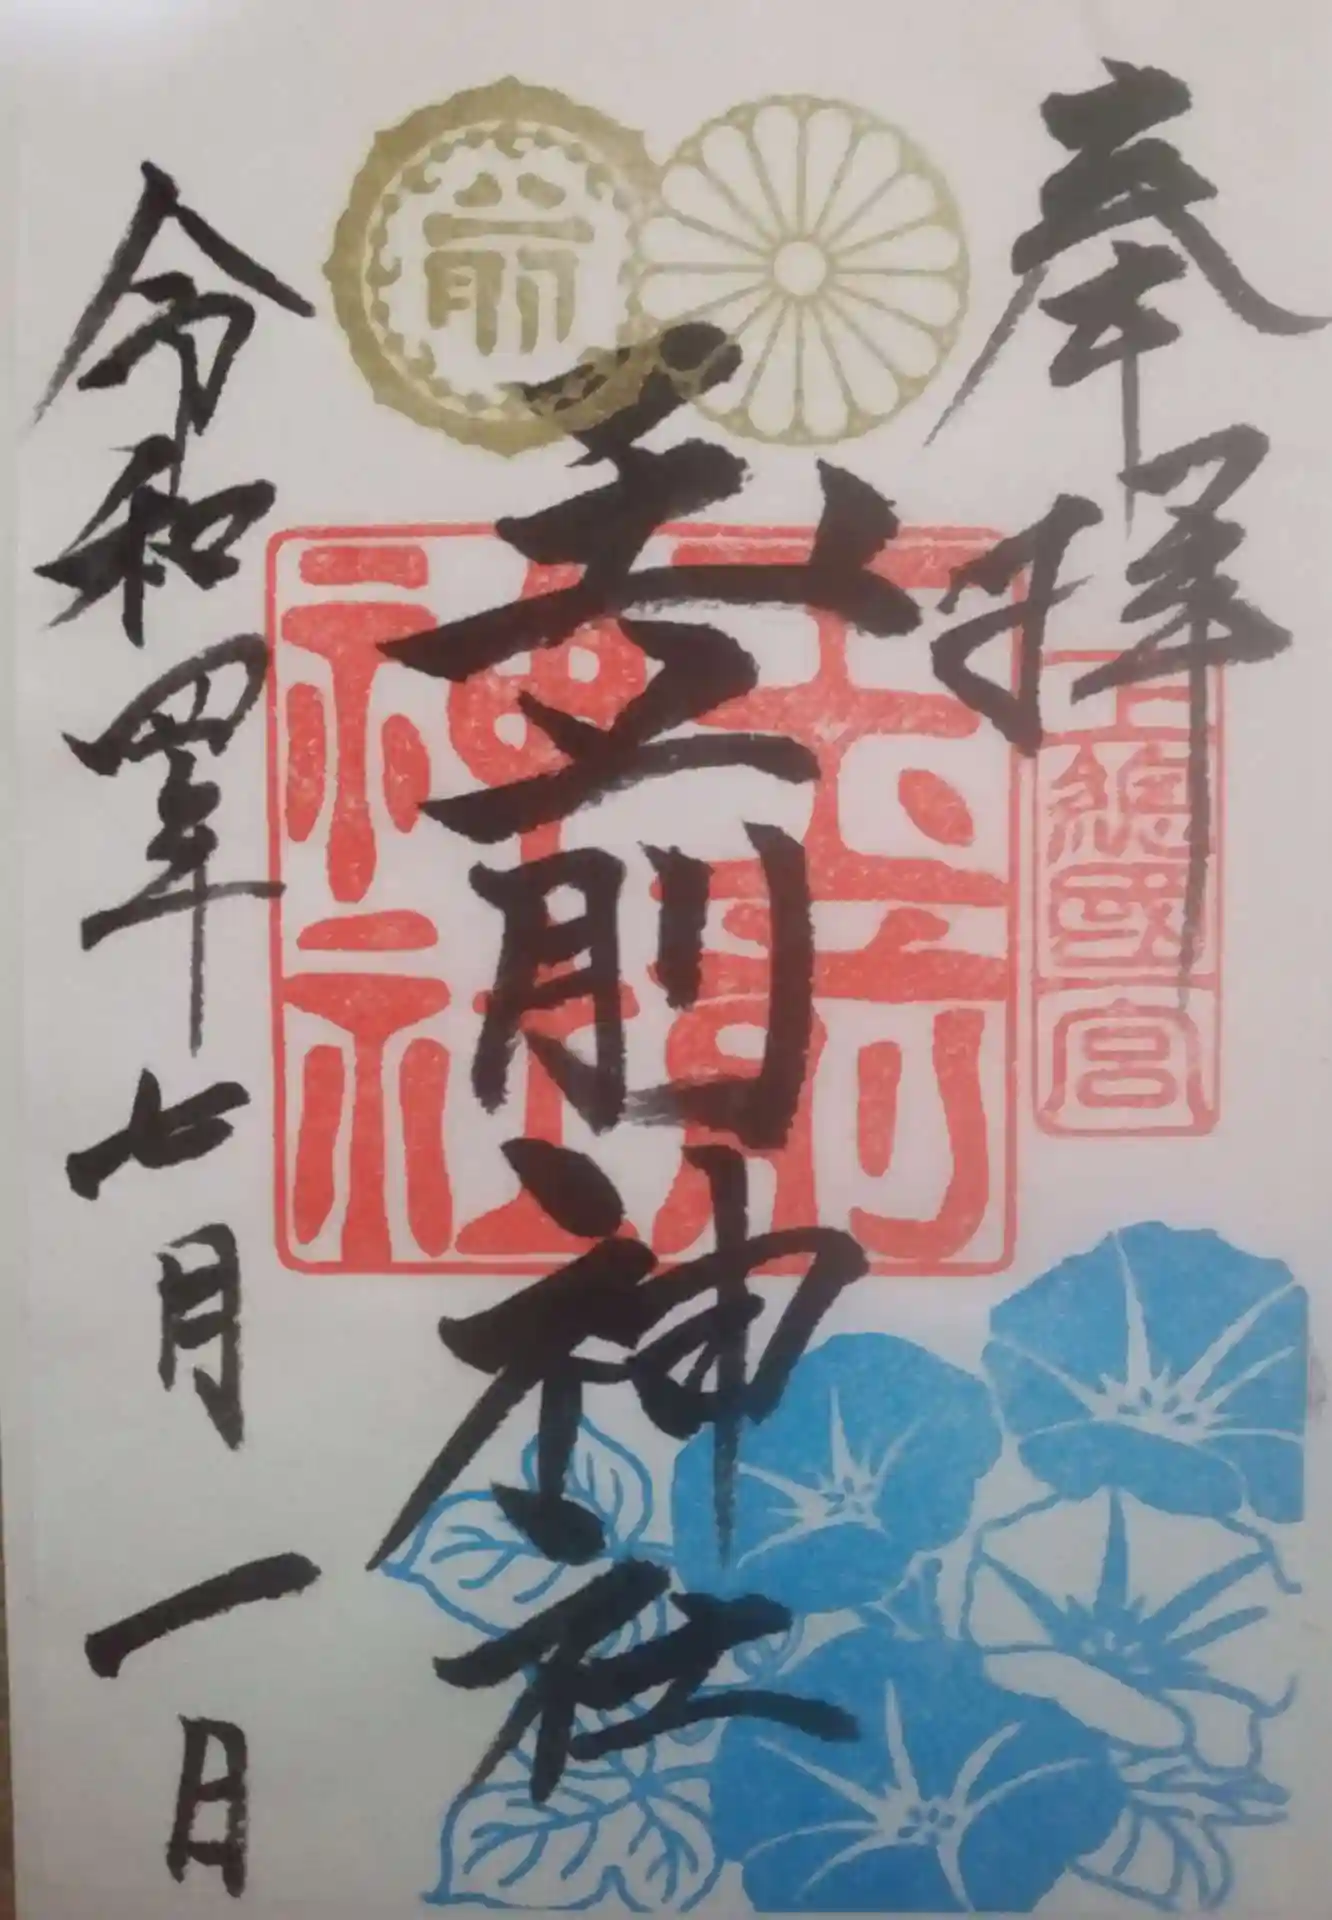 奉拝
上總國一宮
前
玉前神社
玉前神社
令和四年七月一日